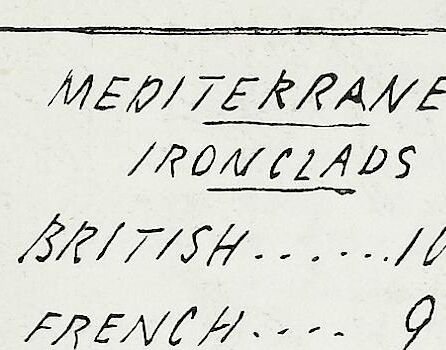 MEDITERRANE
IRONCLADS
BRITISH.......10
FRENCH..... 9